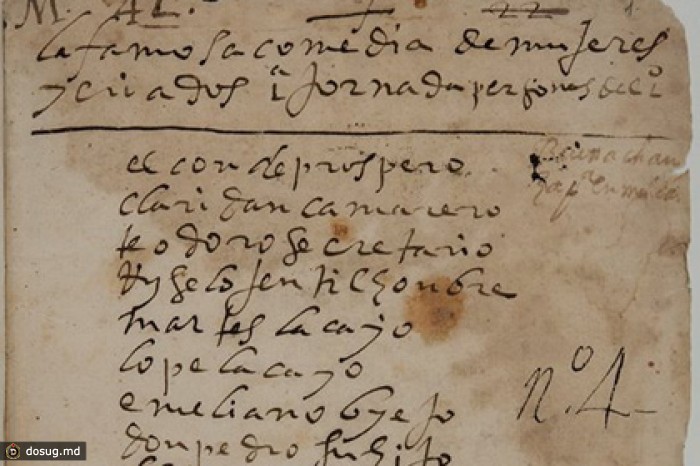 M. 41.
la famosa comedia de mujeres
y criados 1ª Jornada personas de la 1ª
el conde prospero
claridan camarero
teodoro secretario
Riselo Jentilhombre
martes lacayo
lope lacayo
nº. 4
emeliano byejo
don pedro su hijo
dosug.md